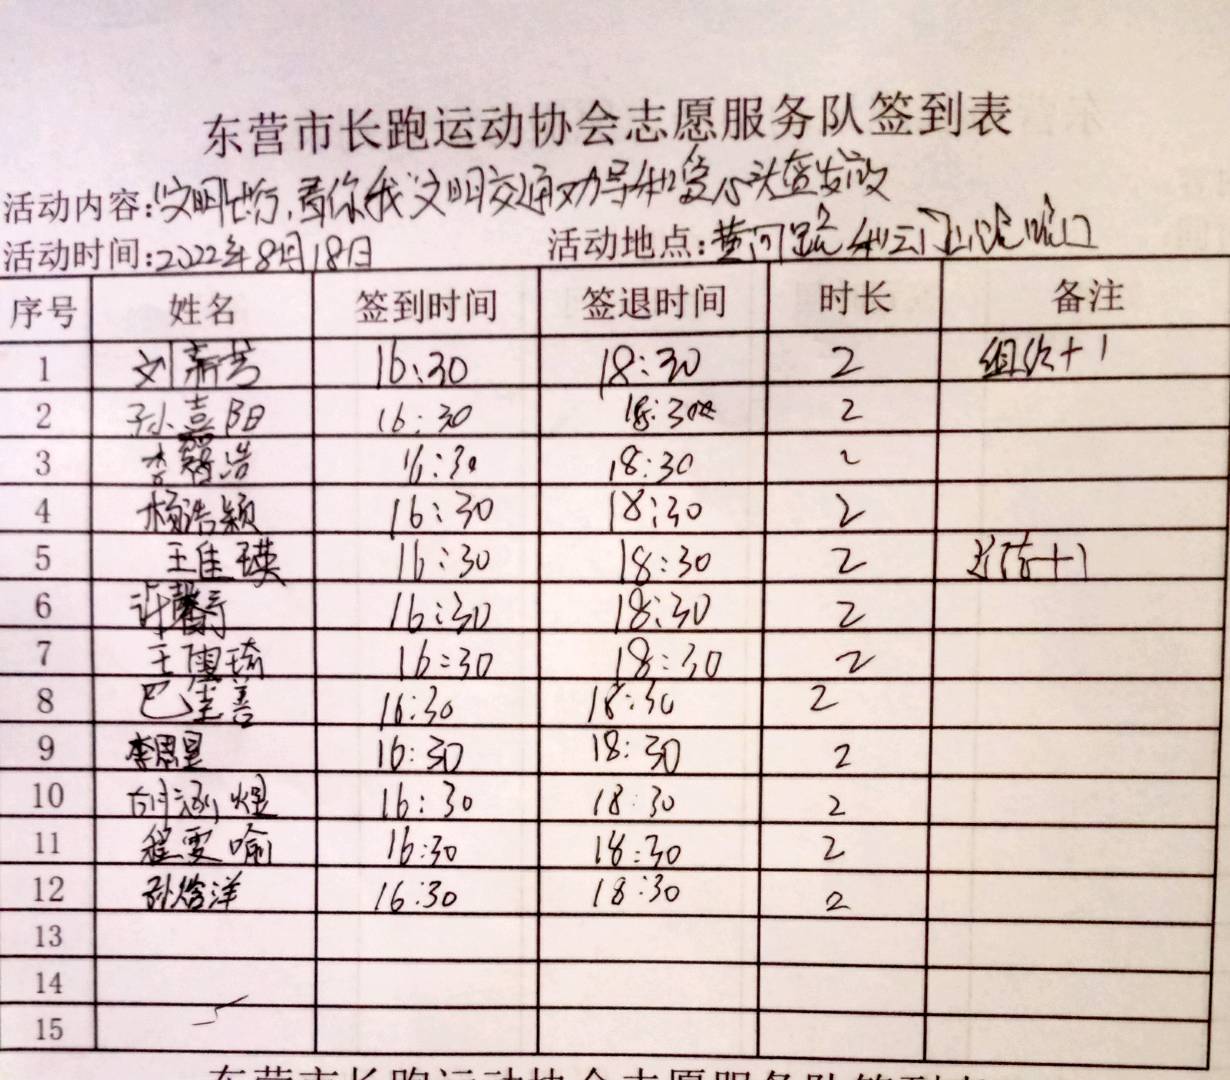 东营市长跑运动协会志愿服务队签到表
活动内容:"文明出行,看你我"文明交通劝导和爱心头盔发放
活动时间:2022年8月18日 活动地点:黄河路和 路口
序号 姓名 签到时间 签退时间 时长 备注
1 刘 16:30 18:30 2 组织+1
2 孙嘉阳 16:30 18:30 2
3 李 浩 16:30 18:30 2
4 杨浩颖 16:30 18:30 2
5 王佳瑛 16:30 18:30 2 +1
6 许馨 16:30 18:30 2
7 王 琦 16:30 18:30 2
8 巴 善 16:30 18:30 2
9 李思 16:30 18:30 2
10 涵煜 16:30 18:30 2
11 程雯喻 16:30 18:30 2
12 孙 洋 16:30 18:30 2
13
14
15
东营市长跑运动协会志愿服务队签到表